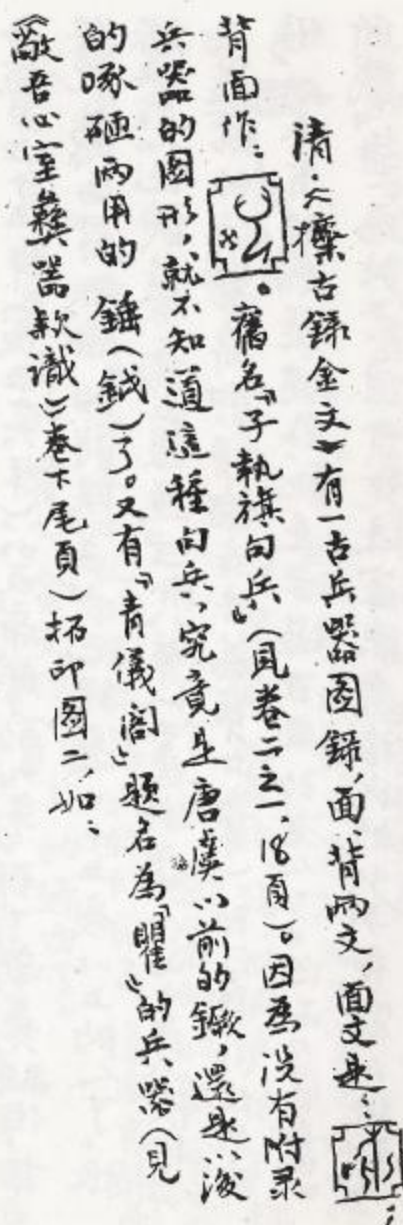 清·《攈古錄金文》有一古兵器图錄,面、背两文,面文是:
背面作:。舊名『子執旗句兵』(見卷二之一、18頁)。因為没有附录
兵器的图形,就不知道這種句兵,究竟是唐虞以前的鏃,還是以後
的啄砸两用的錘(鉞)了。又有『青儀閣』題名為『瞿』的兵器(見
《敵吾心室彝器款識》卷下尾頁)拓印图二,如: